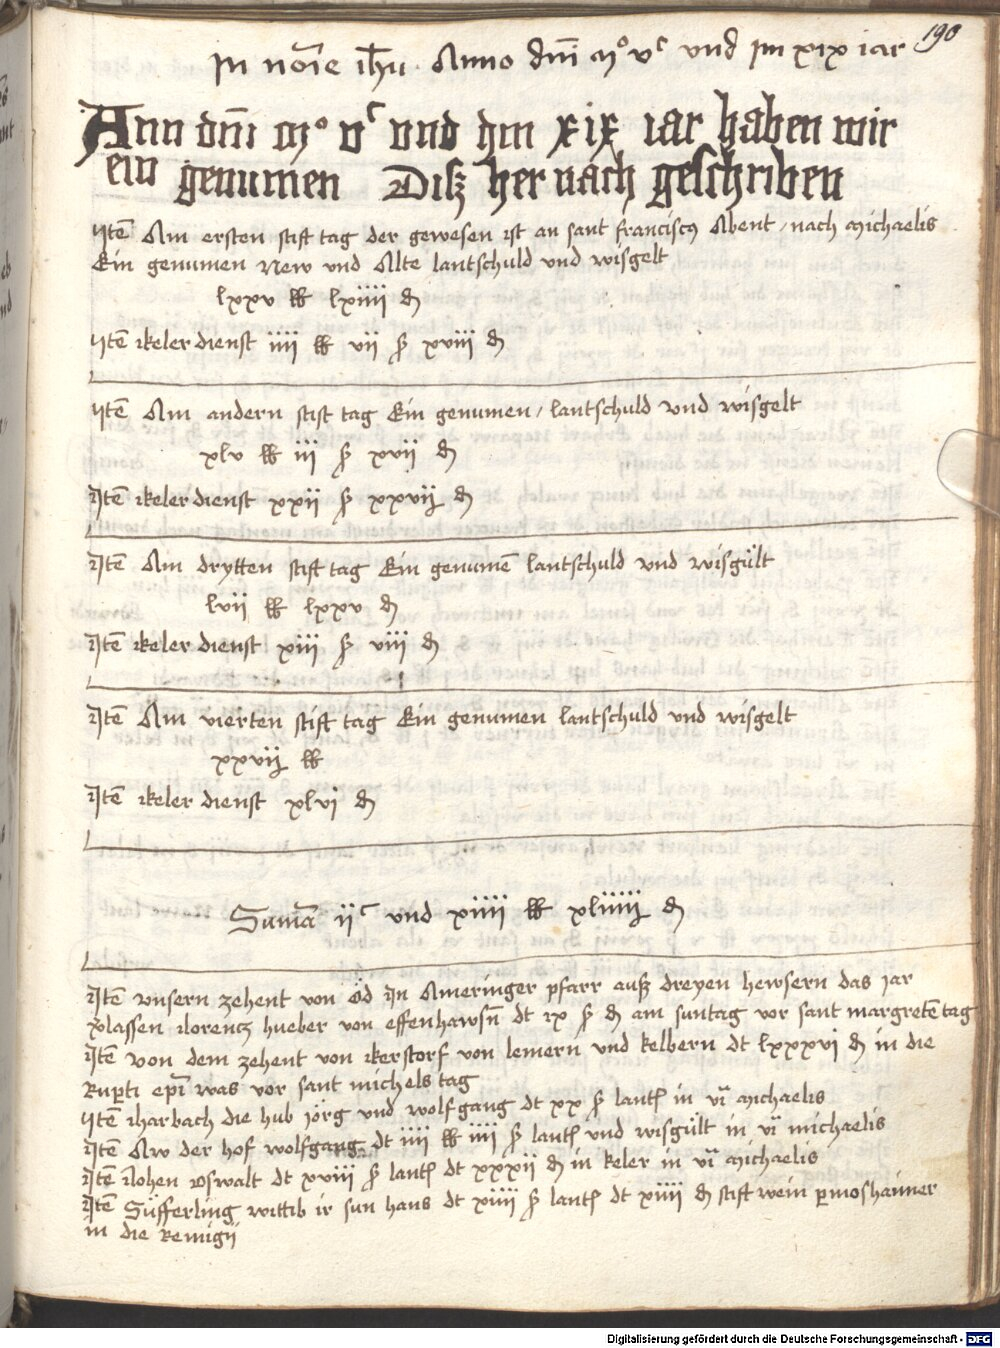 190
In noie ihu Anno dni mº vᶜ vnd im xix iar
Ann dni mº vᶜ vnd ym xix iar haben wir
ein genumen Disz her nach geschriben
Itē Am ersten stift tag der gewesen ist an sant franciscꝫ Abent / nach michaelis
Ein genumen New vnd Alte lantschuld vnd wisgelt
lxxv ℔ lxiiii ₰
Itē keler dienst iiii ℔ vii ß xviii ₰
Itē Am andern stift tag Ein genumen / lantschuld vnd wisgelt
xlv ℔ iii ß xvii ₰
Itē keler dienst xxii ß xxvij ₰
Itē Am drytten stift tag Ein genumē lantschuld vnd wisgült
lvii ℔ lxxv ₰
Itē keler dienst xiii ß viii ₰
Itē Am vierten stift tag Ein genumen lantschuld vnd wisgelt
xxvij ℔
Itē keler dienst xlvj ₰
Sumā iiᶜ vnd xiiii ℔ xliiij ₰
Itē vnsern zehent von öd In Ameringer pfarr ausz dreyen hewsern das jar
lassen lorencz hueber von effenhawsn̄ dt ix ß ₰ am suntag vor sant margretē tag
Itē von dem zehent von kerstorf von lemern vnd kelbern dt lxxxvi ₰ in die
Rupti epi was vor sant michels tag
Itē harbach die hub jörg vnd wolfgang dt xx ß lantß in vī michaelis
Itē Aw der hof wolfgang dt iiii ℔ iiii ß lantß vnd wisgült in vī michaelis
Itē lohen oswalt dt xviii ß lantß dt xxxii ₰ in keler in vī michaelis
Itē Süfferling wittib ir sun hans dt xiiii ß lantß dt xiiii ₰ stift wein pmoshaimer
in die Remigij
Digitalisierung gefördert durch die Deutsche Forschungsgemeinschaft - DFG